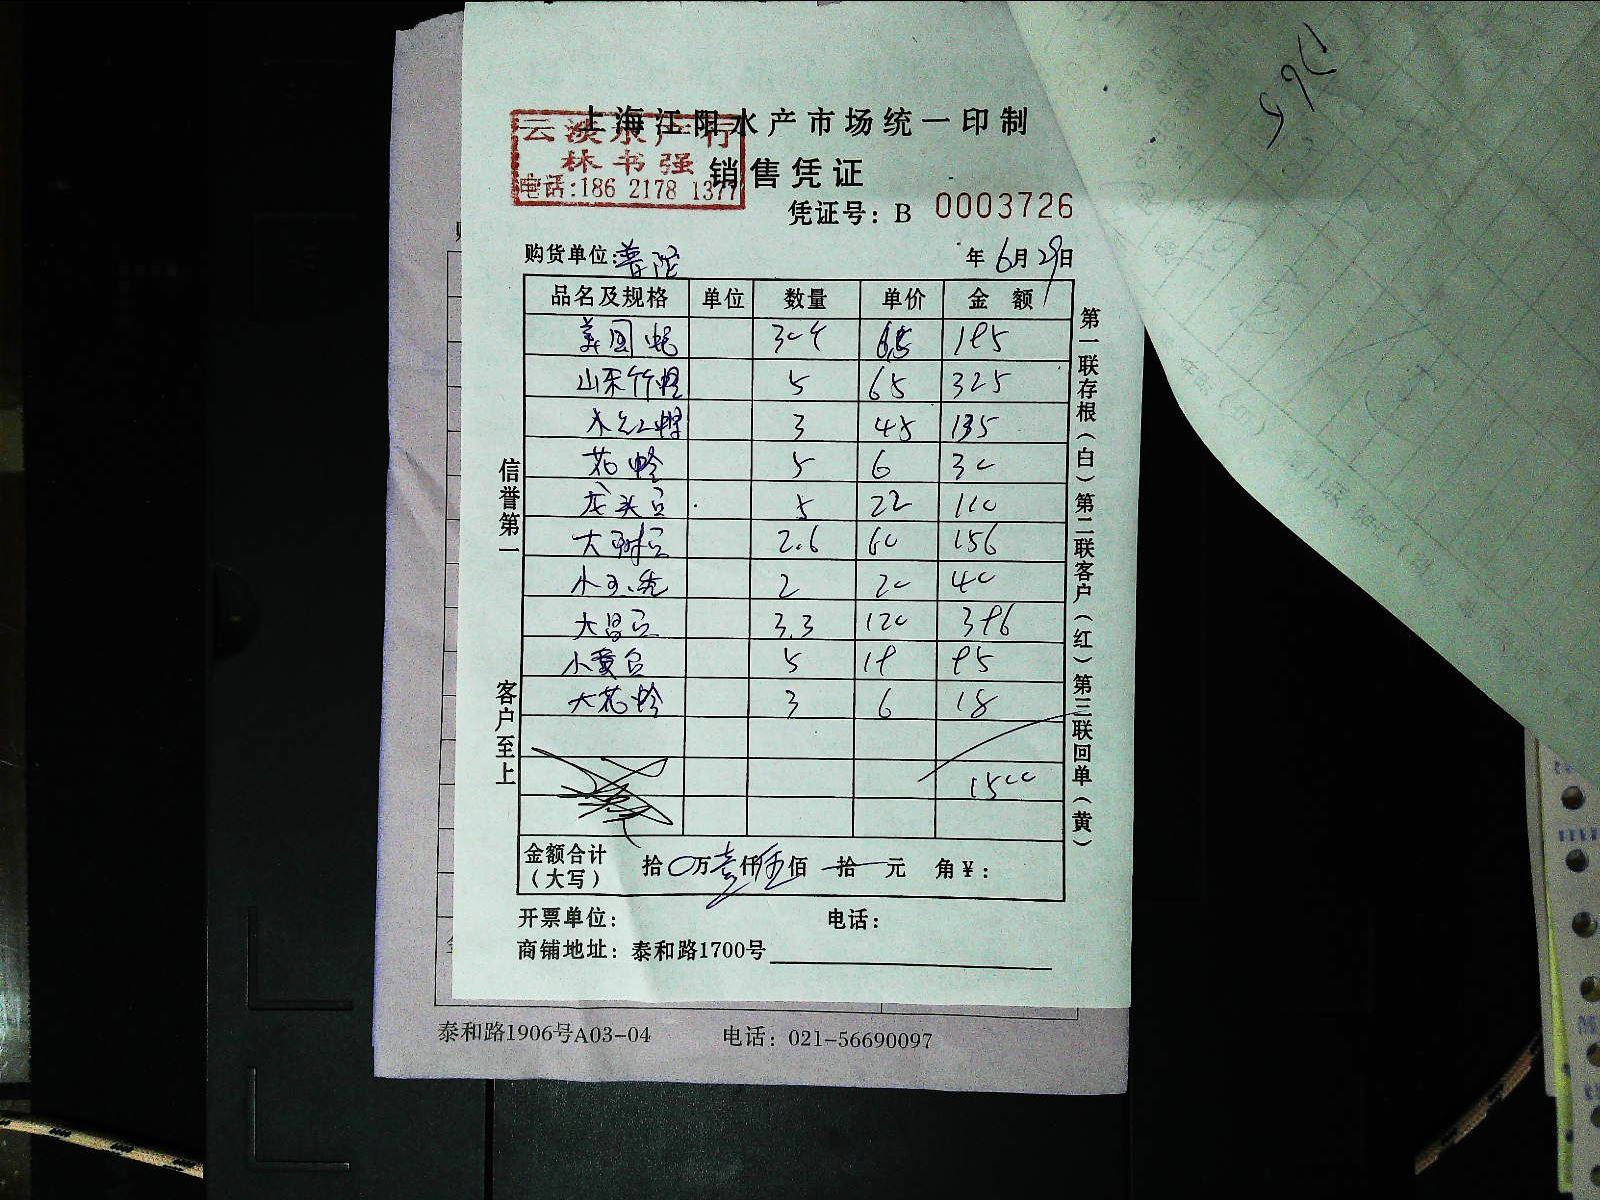 上海江阳水产市场统一印制
云淡水产行
林书强
电话:186 2178 1377
销售凭证
凭证号: B 0003726
购货单位:普陀 年6月29日
品名及规格 单位 数量 单价 金额
美国蚝 30个 6.5 195
山东竹蛏 5 65 325
3 45 135
花蛤 5 6 30
龙头豆 5 22 110
大 2.6 60 156
小 2 20 40
大 3.3 120 396
小黄 5 19 95
大花蛤 3 6 18
1500
金额合计
(大写) 拾0万壹仟伍佰 拾 元 角¥:
开票单位: 电话:
商铺地址: 泰和路1700号
信誉第一 客户至上
第一联存根(白)第二联客户(红)第三联回单(黄)
泰和路1906号A03-04 电话: 021-56690097